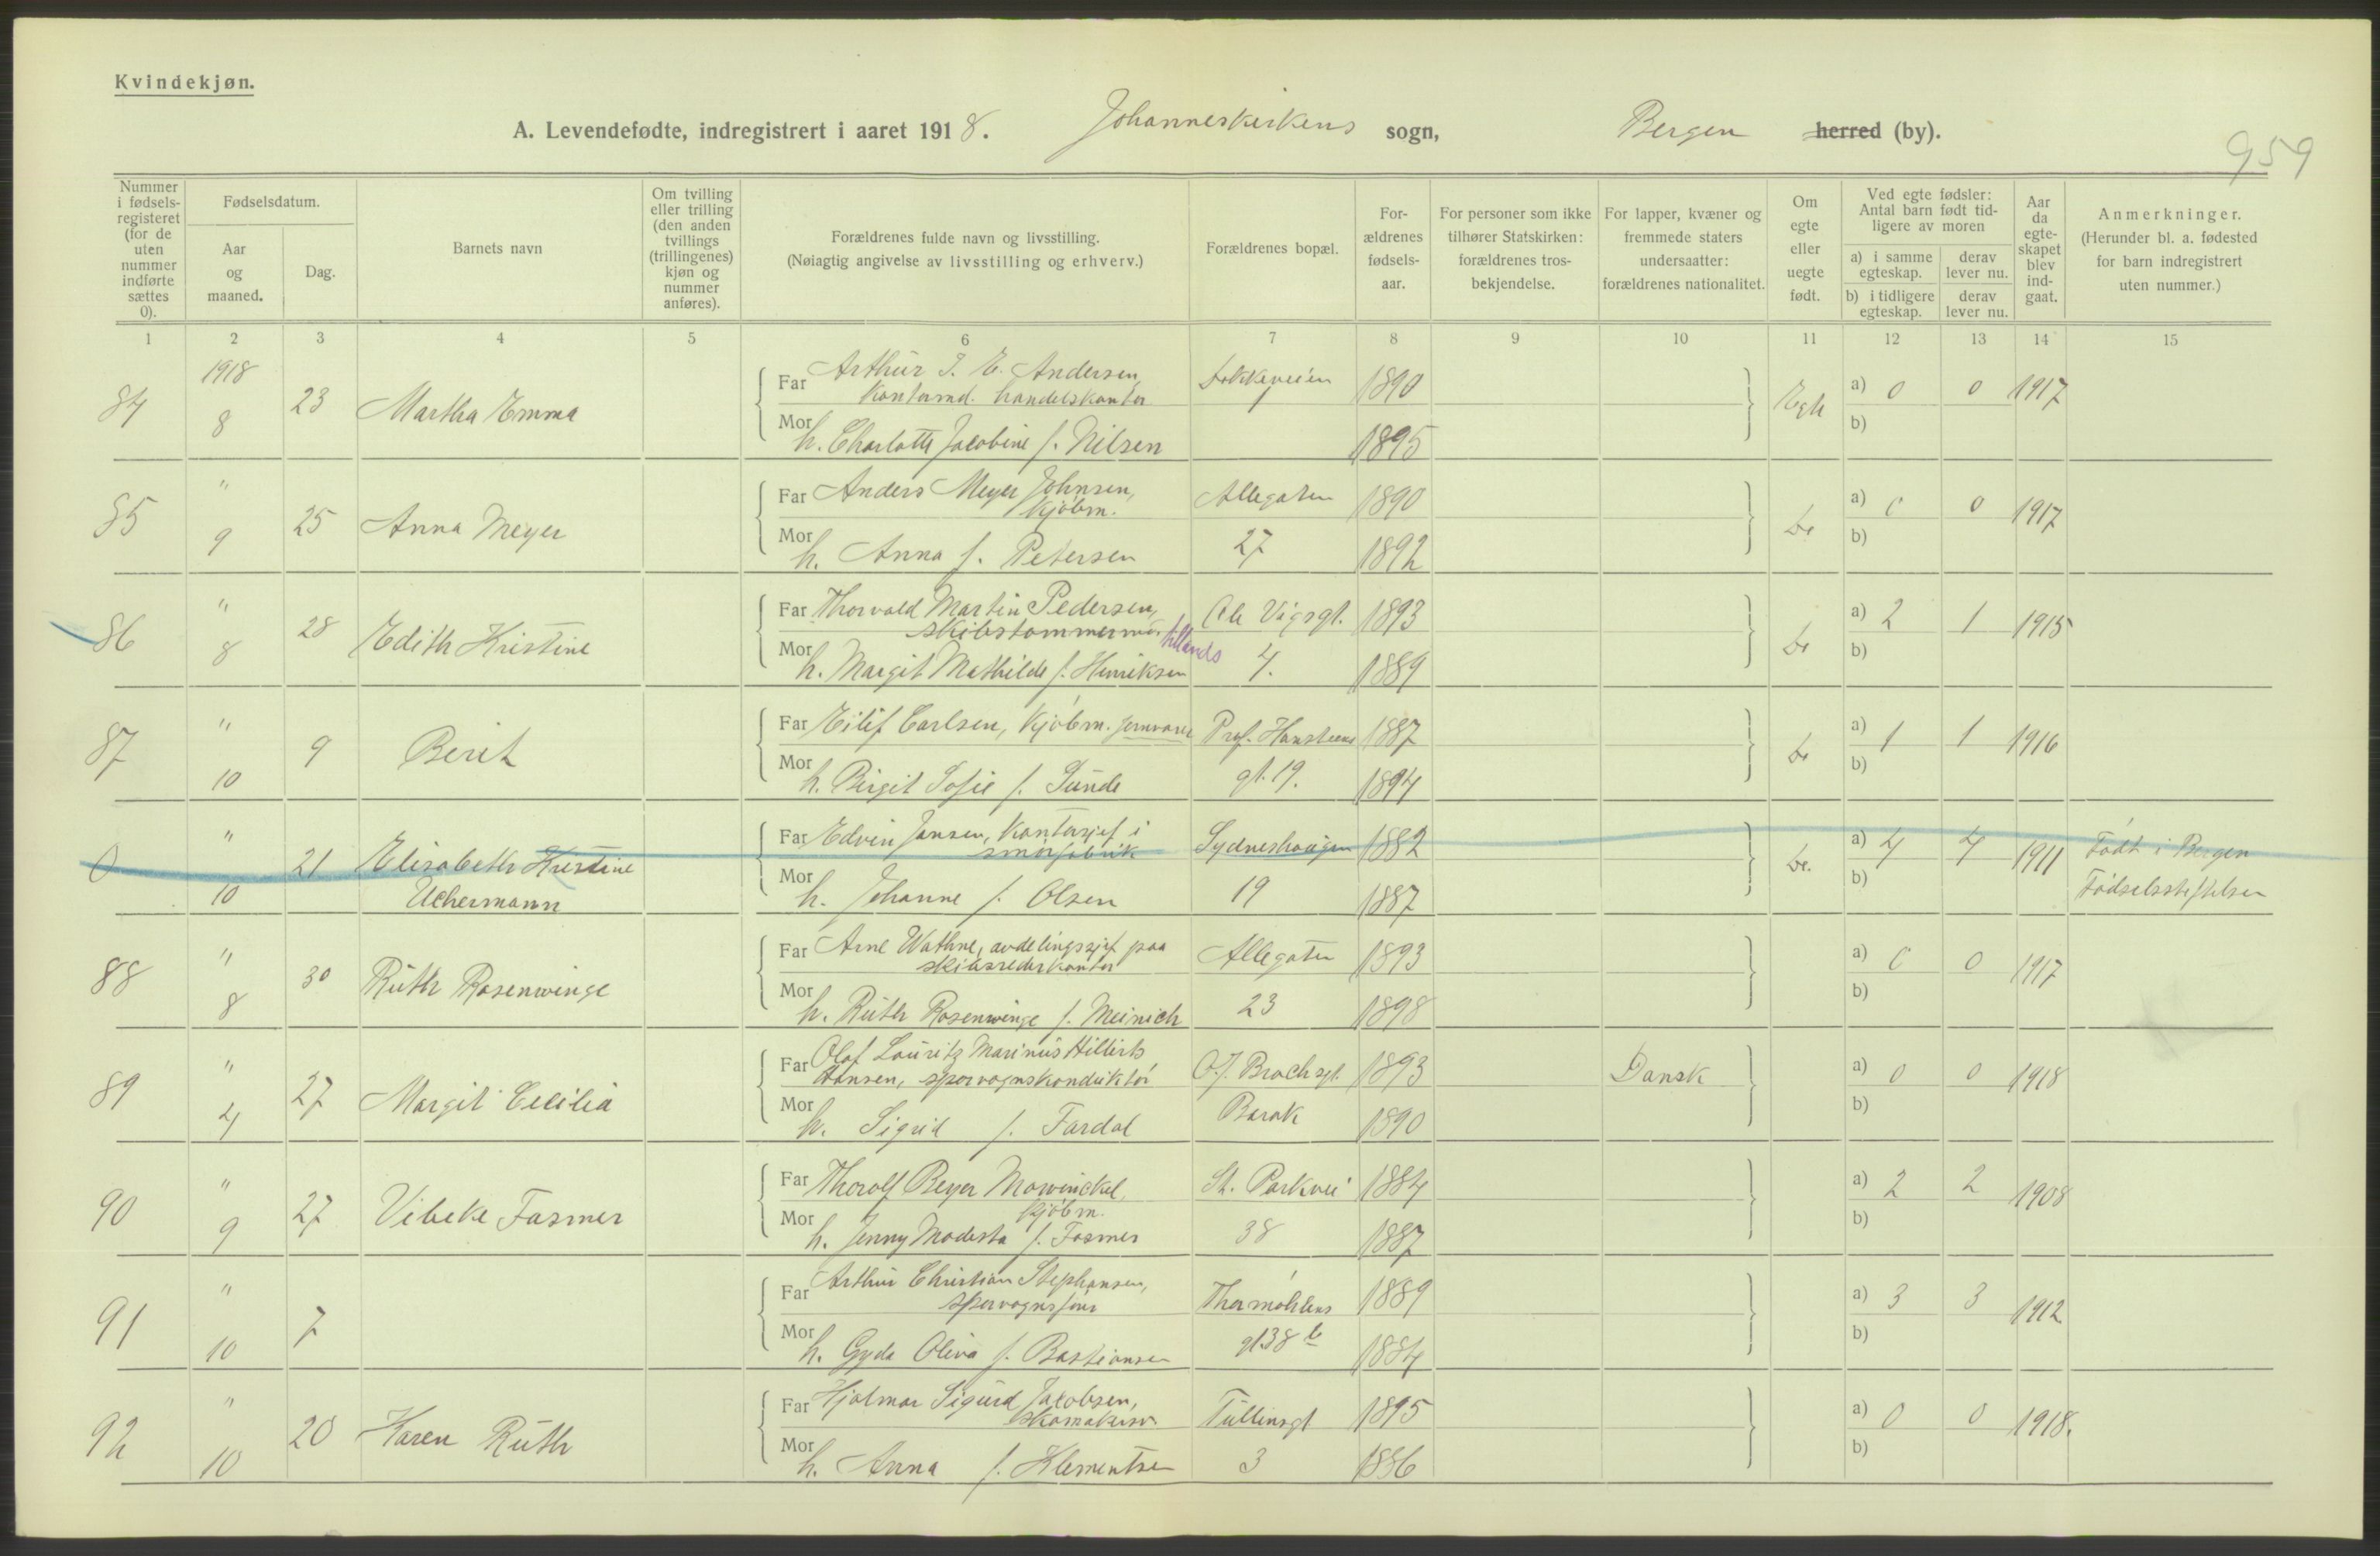 Kvindekjøn.
A. Levendefødte, indregistrert i aaret 1918. Johanneskirkens sogn, Bergen herred (by).
959
Nummer i fødsels-registeret (for de uten nummer indførte sættes 0).
Fødselsdatum.
Aar og maaned.
Dag.
Barnets navn
Om tvilling eller trilling (den anden tvillings (trillingenes) kjøn og nummer anføres).
Forældrenes fulde navn og livsstilling.
(Nøiagtig angivelse av livsstilling og erhverv.)
Forældrenes bopæl.
For-ældrenes fødsels-aar.
For personer som ikke tilhører Statskirken: forældrenes tros-bekjendelse.
For lapper, kvæner og fremmede staters undersaatter: forældrenes nationalitet.
Om egte eller uegte født.
Ved egte fødsler:
Antal barn født tid-ligere av moren
a) i samme egteskap.
derav lever nu.
b) i tidligere egteskap.
derav lever nu.
Aar da egte-skapet blev ind-gaat.
Anmerkninger.
(Herunder bl. a. fødested for barn indregistrert uten nummer.)
1 2 3 4 5 6 7 8 9 10 11 12 13 14 15
84 1918 8 23 Martha Emma
Far Arthur J. E. Andersen, Dokkeveien 1890
kontormd. handelskontor 1
Mor h. Charlotte Jacobine f. Nilsen 1895
Egte a) 0 0 1917
b)
85 " 9 25 Anna Meyer
Far Anders Meyer Johnsen, Allegaten 1890
kjøbm.
Mor h. Anna f. Petersen 27 1892
Do a) 0 0 1917
b)
86 " 8 28 Edith Kristine
Far Thorvald Martin Pedersen, Ole Vigsgt. 1893
skibstømmermd. tillands
Mor h. Margit Mathilde f. Henriksen 4. 1889
Do a) 2 1 1915
b)
87 " 10 9 Berit
Far Eilif Carlsen, kjøbm. jernvarer Prof. Hansteens 1887
Mor h. Birgit Sofie f. Sunde gt. 19. 1894
Do a) 1 1 1916
b)
0 " 10 21 Elisabeth Kristine
Uchermann
Far Edvin Jansen, kontorsjef i Sydneshaugen 1882
smørfabrik
Mor h. Johanne f. Olsen 19 1887
Do. a) 4 4 1911 Født i Bergen
b) Fødselsstiftelsen
88 " 8 30 Ruth Rosenwinge
Far Arne Wathne, avdelingssjef paa Allegaten 1893
skibsrederkontor
Mor h. Ruth Rosenwinge f. Meinich 23 1898
a) 0 0 1917
b)
89 " 4 27 Margit Cecilia
Far Olaf Lauritz Marinus Hillerts
Hansen, sporvognskonduktør O.J. Brochsgt. 1893 Dansk
Mor h. Sigrid f. Fardal Barak 1890
a) 0 0 1918
b)
90 " 9 27 Vibeke Fasmer
Far Thorolf Beyer Mowinckel, St. Parkvei 1884
kjøbm.
Mor h. Jenny Modesta f. Fasmer 38 1887
a) 2 2 1908
b)
91 " 10 7
Far Arthur Christian Stephansen, Thormøhlens 1889
sporvognsfører
Mor h. Gyda Oliva f. Bastiansen gt 38 b 1884
a) 3 3 1912
b)
92 " 10 20 Karen Ruth
Far Hjalmar Sigurd Jacobsen, Tullinsgt 1895
skomakersv.
Mor h. Anna f. Klementsen 3 1886
a) 0 0 1918.
b)